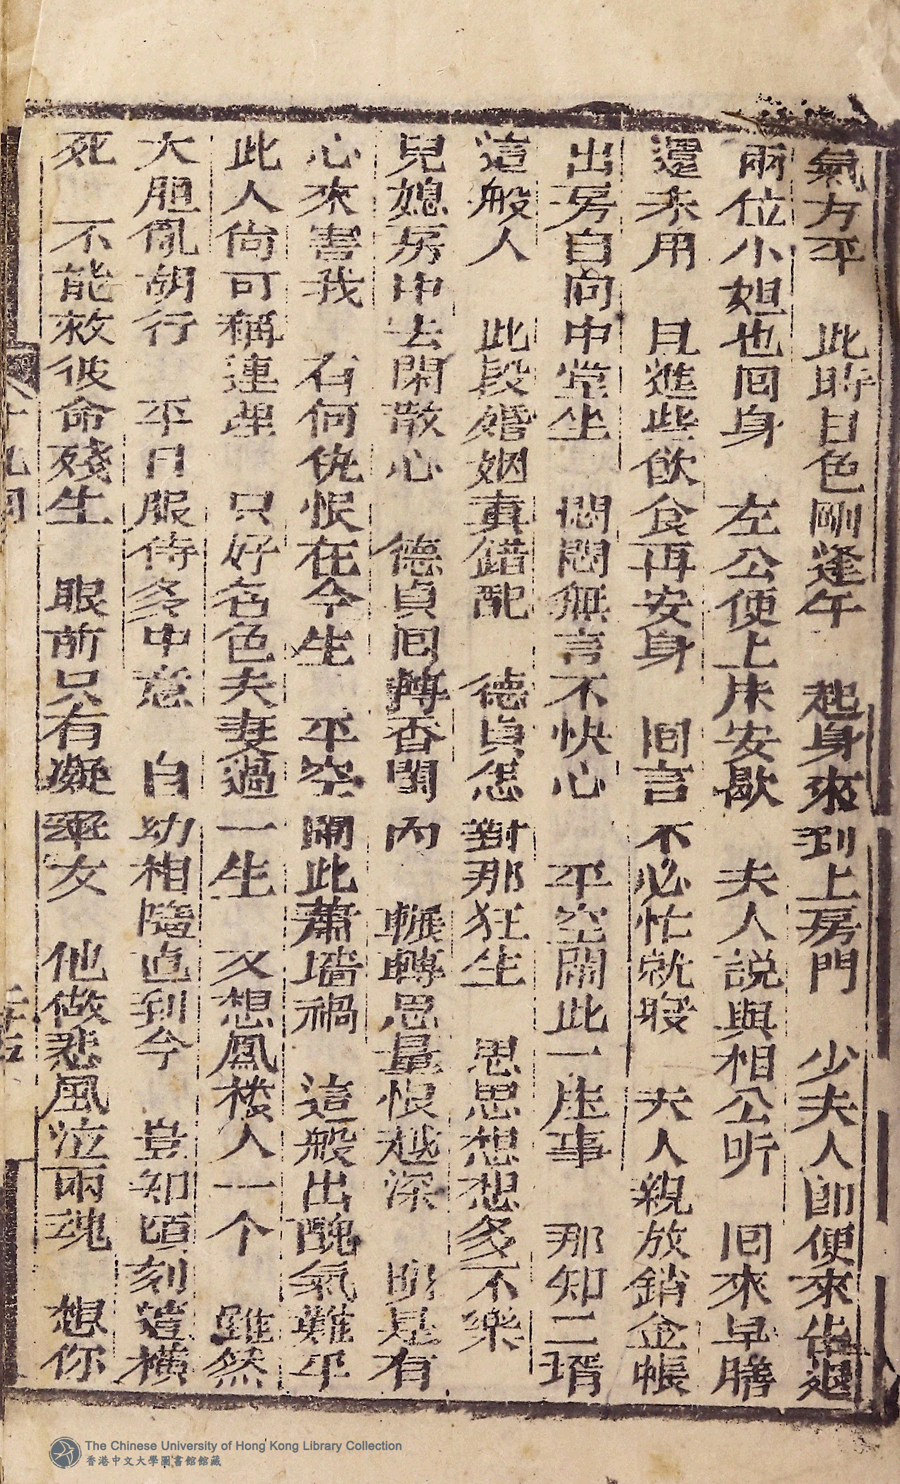 氣方平　此時日色剛逢午　起身來到上房門　少夫人卽便來告退
兩位小姐也回身　左公便上床安歇　夫人説與相公听　回來早膳
還未用　且進些飲食再安身　回言不必忙就晚　夫人親放銷金帳
出房自向中堂坐　悶悶無言不快心　平空鬧此一庄事　那知二壻
這般人　此段婚姻真錯配　德貞怎對那狂生　思思想想多不樂
兒媳房中去閑散心　德貞回轉香閨內　輾轉思量恨越深　明是有
心來害我　有何仇恨在今生　平空鬧此蕭墻禍　這般出醜氣難平
此人尙可稱連理　只好名色夫妻過一生　又想鳳楼人一个　雖然
大胆亂胡行　平日服侍多中意　自幼相隨直到今　豈知頃刻遭橫
死　不能救彼命殘生　眼前只有癡呆女　他做悲風泣兩魂　想你
十九回
The Chinese University of Hong Kong Library Collection
香港中文大學圖書館館藏